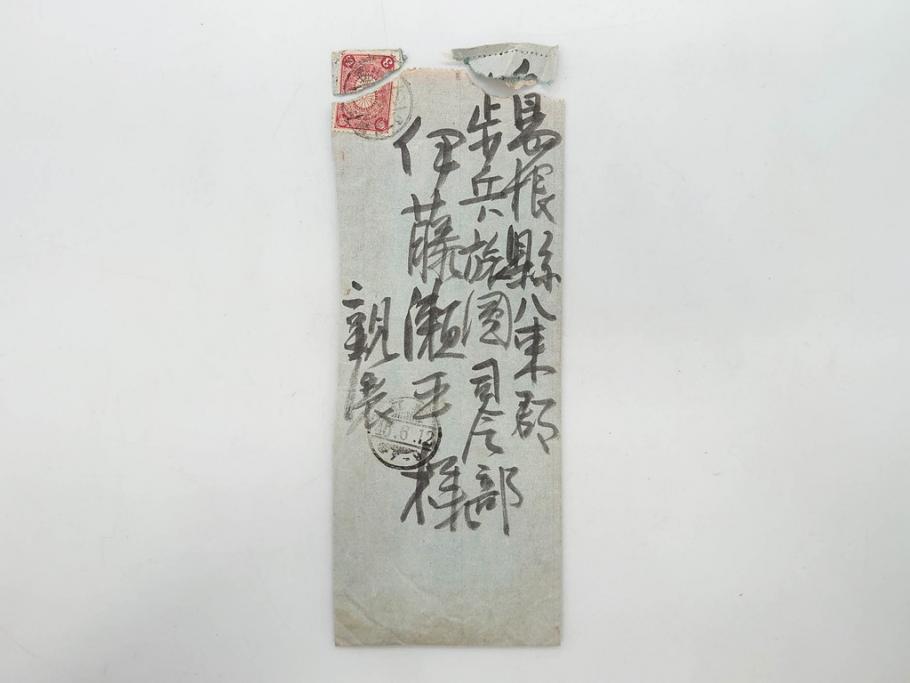 島根縣八束郡
歩兵旅團司令部
伊藤瀬平様
親展
40.6.12